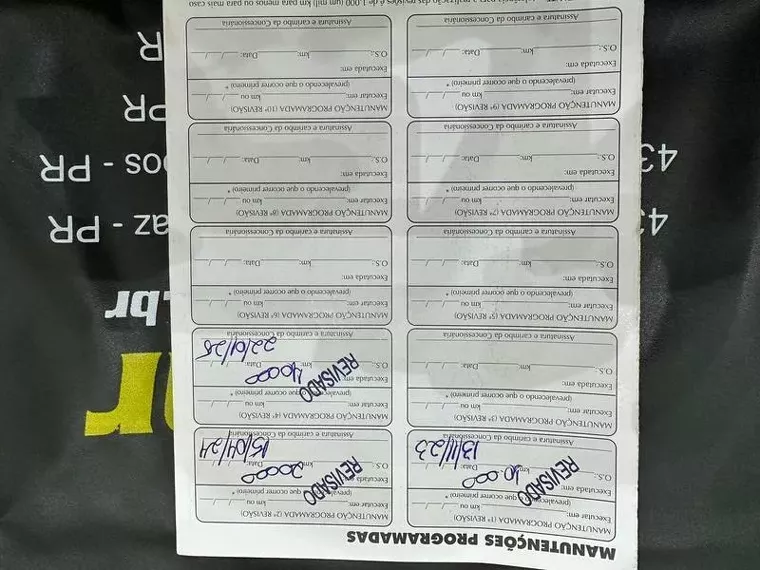 MANUTENÇÕES PROGRAMADAS
MANUTENÇÃO PROGRAMADA (1ª REVISÃO)
Executar em: km ou / /
(prevalecendo o que ocorrer primeiro) *
Executada em:
O.S.: km: 10.000 Data: 13/11/23
REVISADO
Assinatura e carimbo da Concessionária
MANUTENÇÃO PROGRAMADA (2ª REVISÃO)
Executar em: km ou / /
(prevalecendo o que ocorrer primeiro) *
Executada em:
O.S.: km: 20000 Data: 15/04/24
REVISADO
Assinatura e carimbo da Concessionária
MANUTENÇÃO PROGRAMADA (3ª REVISÃO)
Executar em: km ou / /
(prevalecendo o que ocorrer primeiro) *
Executada em:
O.S.: km: Data: / /
Assinatura e carimbo da Concessionária
MANUTENÇÃO PROGRAMADA (4ª REVISÃO)
Executar em: km ou / /
(prevalecendo o que ocorrer primeiro) *
Executada em:
O.S.: km: 40000 Data: 22/01/25
REVISADO
Assinatura e carimbo da Concessionária
MANUTENÇÃO PROGRAMADA (5ª REVISÃO)
Executar em: km ou / /
(prevalecendo o que ocorrer primeiro) *
Executada em:
O.S.: km: Data: / /
Assinatura e carimbo da Concessionária
MANUTENÇÃO PROGRAMADA (6ª REVISÃO)
Executar em: km ou / /
(prevalecendo o que ocorrer primeiro) *
Executada em:
O.S.: km: Data: / /
Assinatura e carimbo da Concessionária
MANUTENÇÃO PROGRAMADA (7ª REVISÃO)
Executar em: km ou / /
(prevalecendo o que ocorrer primeiro) *
Executada em:
O.S.: km: Data: / /
Assinatura e carimbo da Concessionária
MANUTENÇÃO PROGRAMADA (8ª REVISÃO)
Executar em: km ou / /
(prevalecendo o que ocorrer primeiro) *
Executada em:
O.S.: km: Data: / /
Assinatura e carimbo da Concessionária
MANUTENÇÃO PROGRAMADA (9ª REVISÃO)
Executar em: km ou / /
(prevalecendo o que ocorrer primeiro) *
Executada em:
O.S.: km: Data: / /
Assinatura e carimbo da Concessionária
MANUTENÇÃO PROGRAMADA (10ª REVISÃO)
Executar em: km ou / /
(prevalecendo o que ocorrer primeiro) *
Executada em:
O.S.: km: Data: / /
Assinatura e carimbo da Concessionária
das revisões é de 1.000 (um mil) km para menos ou para mais caso
.br
43 az - PR
43 os - PR
PR
R